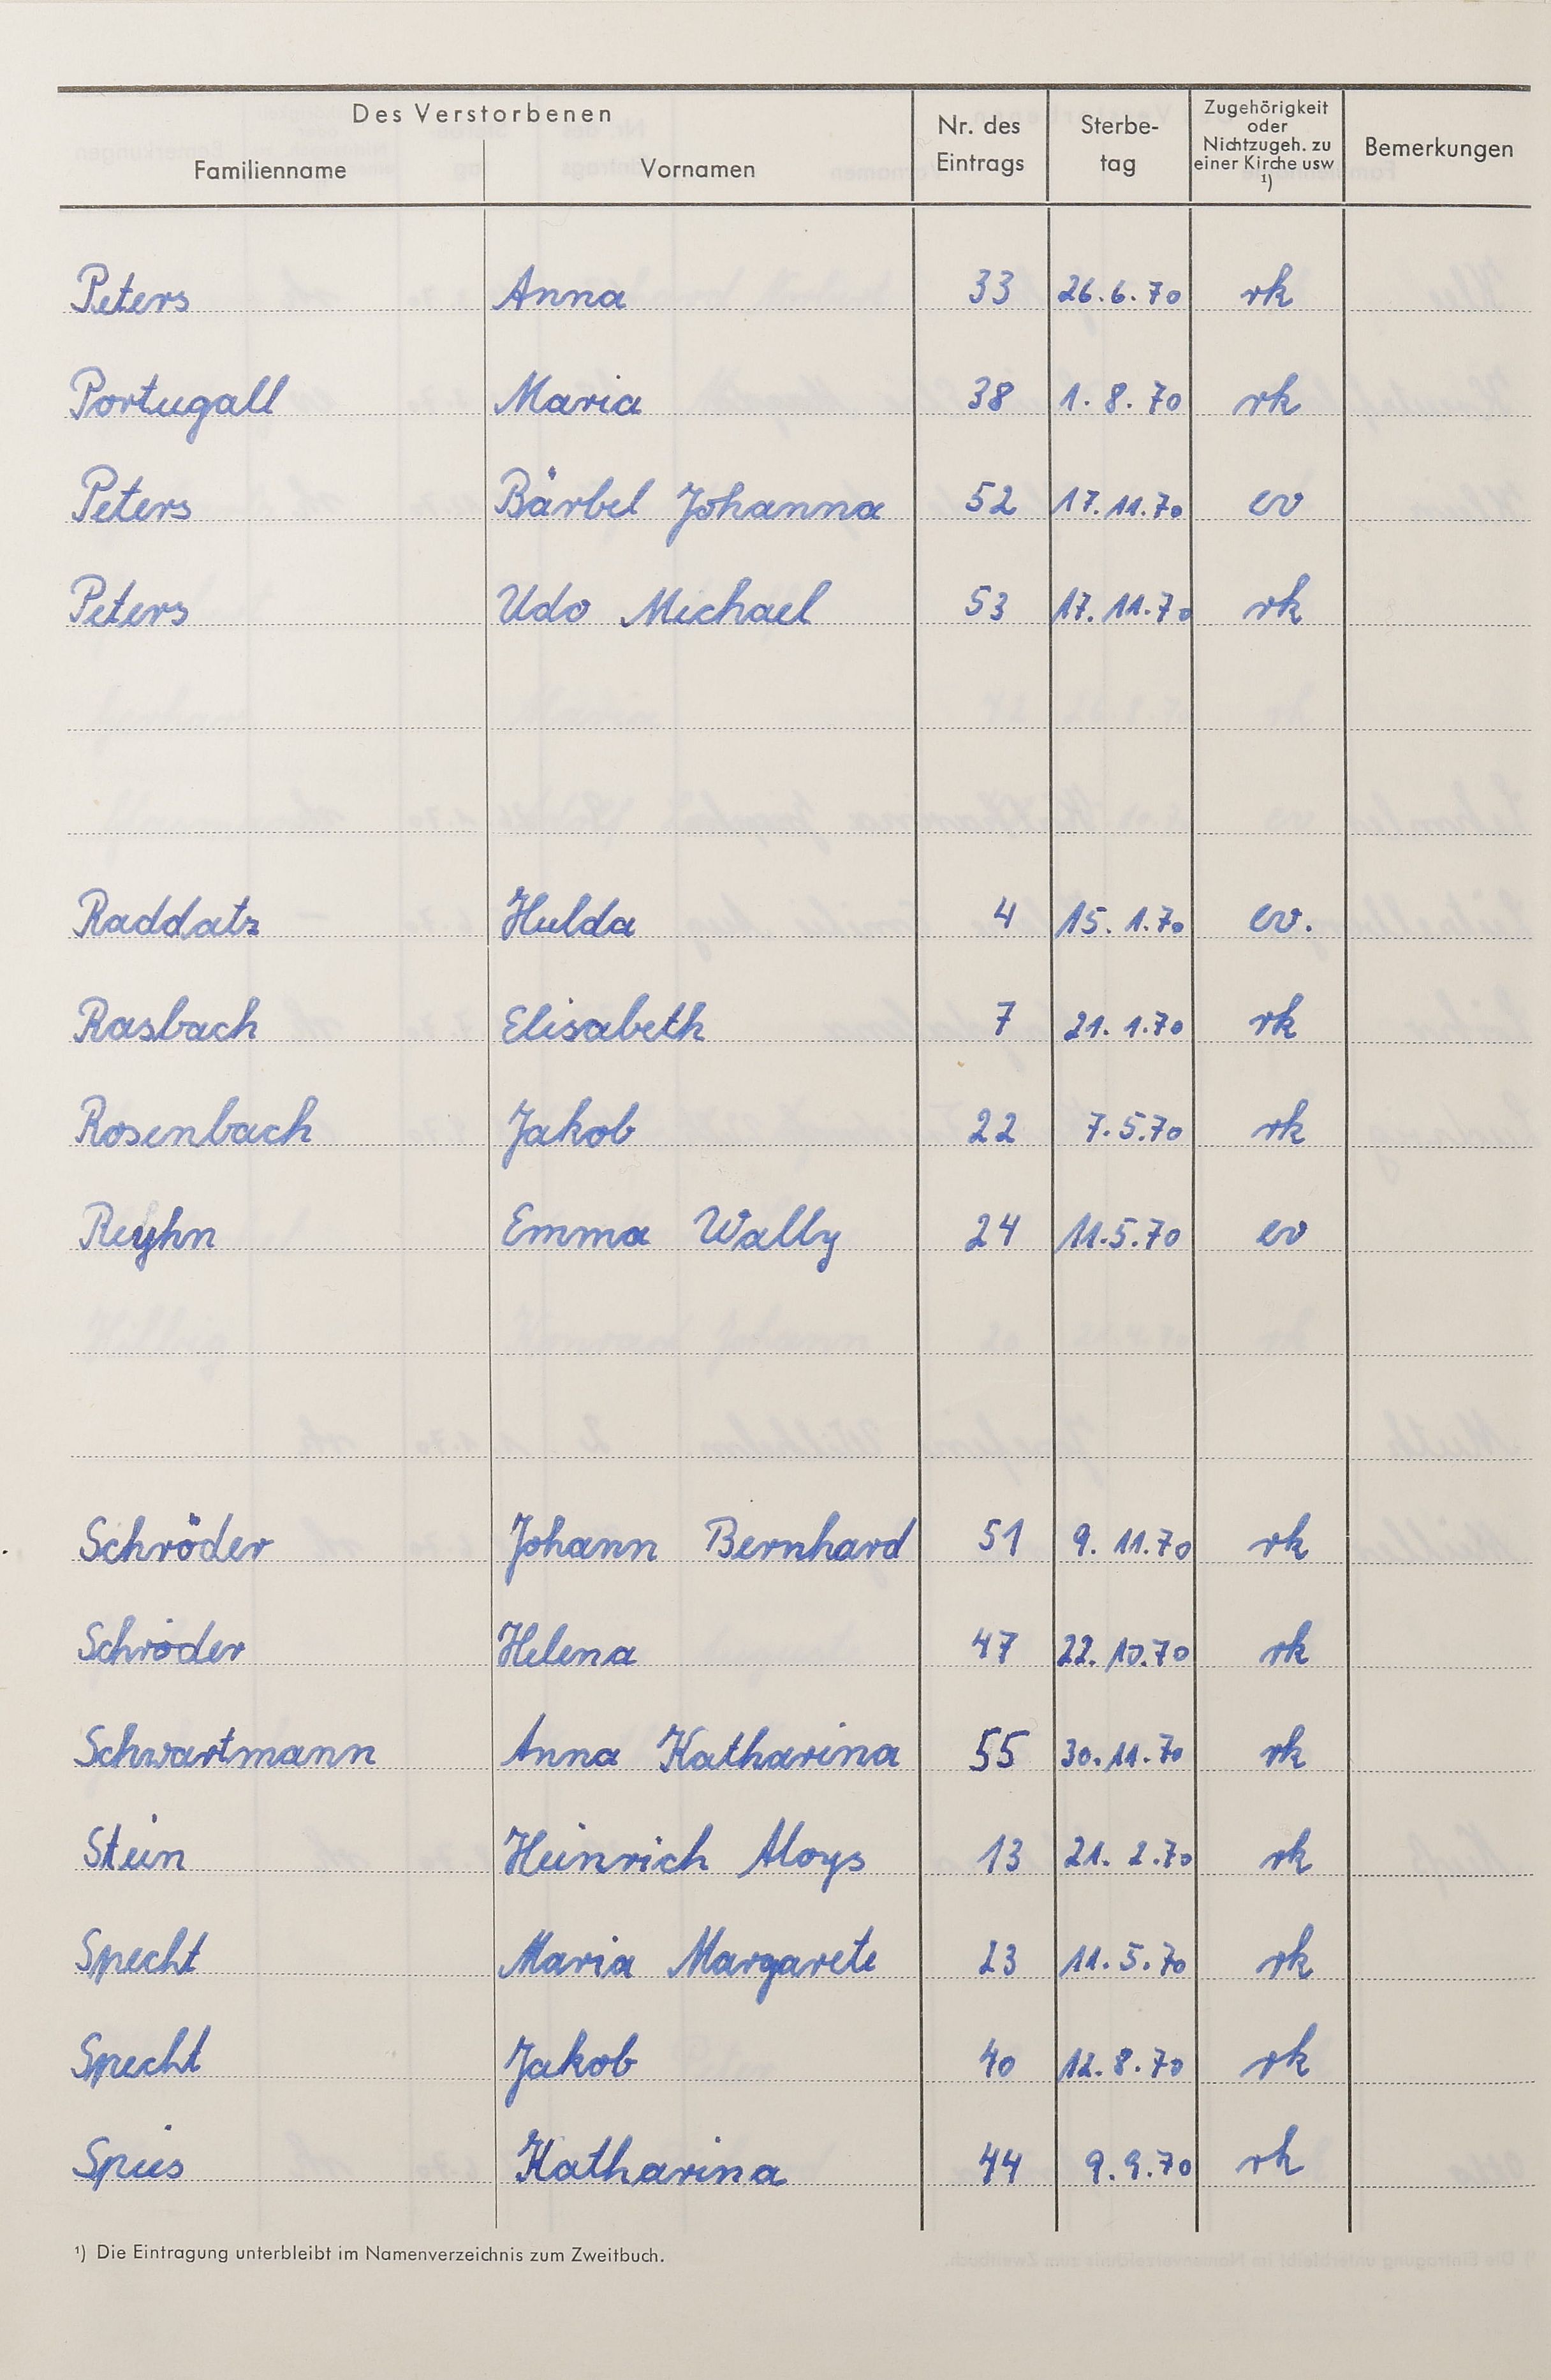 Des Verstorbenen
Familienname Vornamen Nr. des Eintrags Sterbe-tag Zugehörigkeit oder Nichtzugeh. zu einer Kirche usw ¹) Bemerkungen
Peters Anna 33 26.6.70 rk
Portugall Maria 38 1.8.70 rk
Peters Bärbel Johanna 52 17.11.70 ev
Peters Udo Michael 53 17.11.70 rk
Raddatz Hulda 4 15.1.70 ev.
Rasbach Elisabeth 7 21.1.70 rk
Rosenbach Jakob 22 7.5.70 rk
Reyhn Emma Wally 24 11.5.70 ev
Schröder Johann Bernhard 51 9.11.70 rk
Schröder Helena 47 22.10.70 rk
Schwartmann Anna Katharina 55 30.11.70 rk
Stein Heinrich Aloys 13 21.2.70 rk
Specht Maria Margarete 23 11.5.70 rk
Specht Jakob 40 12.8.70 rk
Spies Katharina 44 9.9.70 rk
¹) Die Eintragung unterbleibt im Namenverzeichnis zum Zweitbuch.